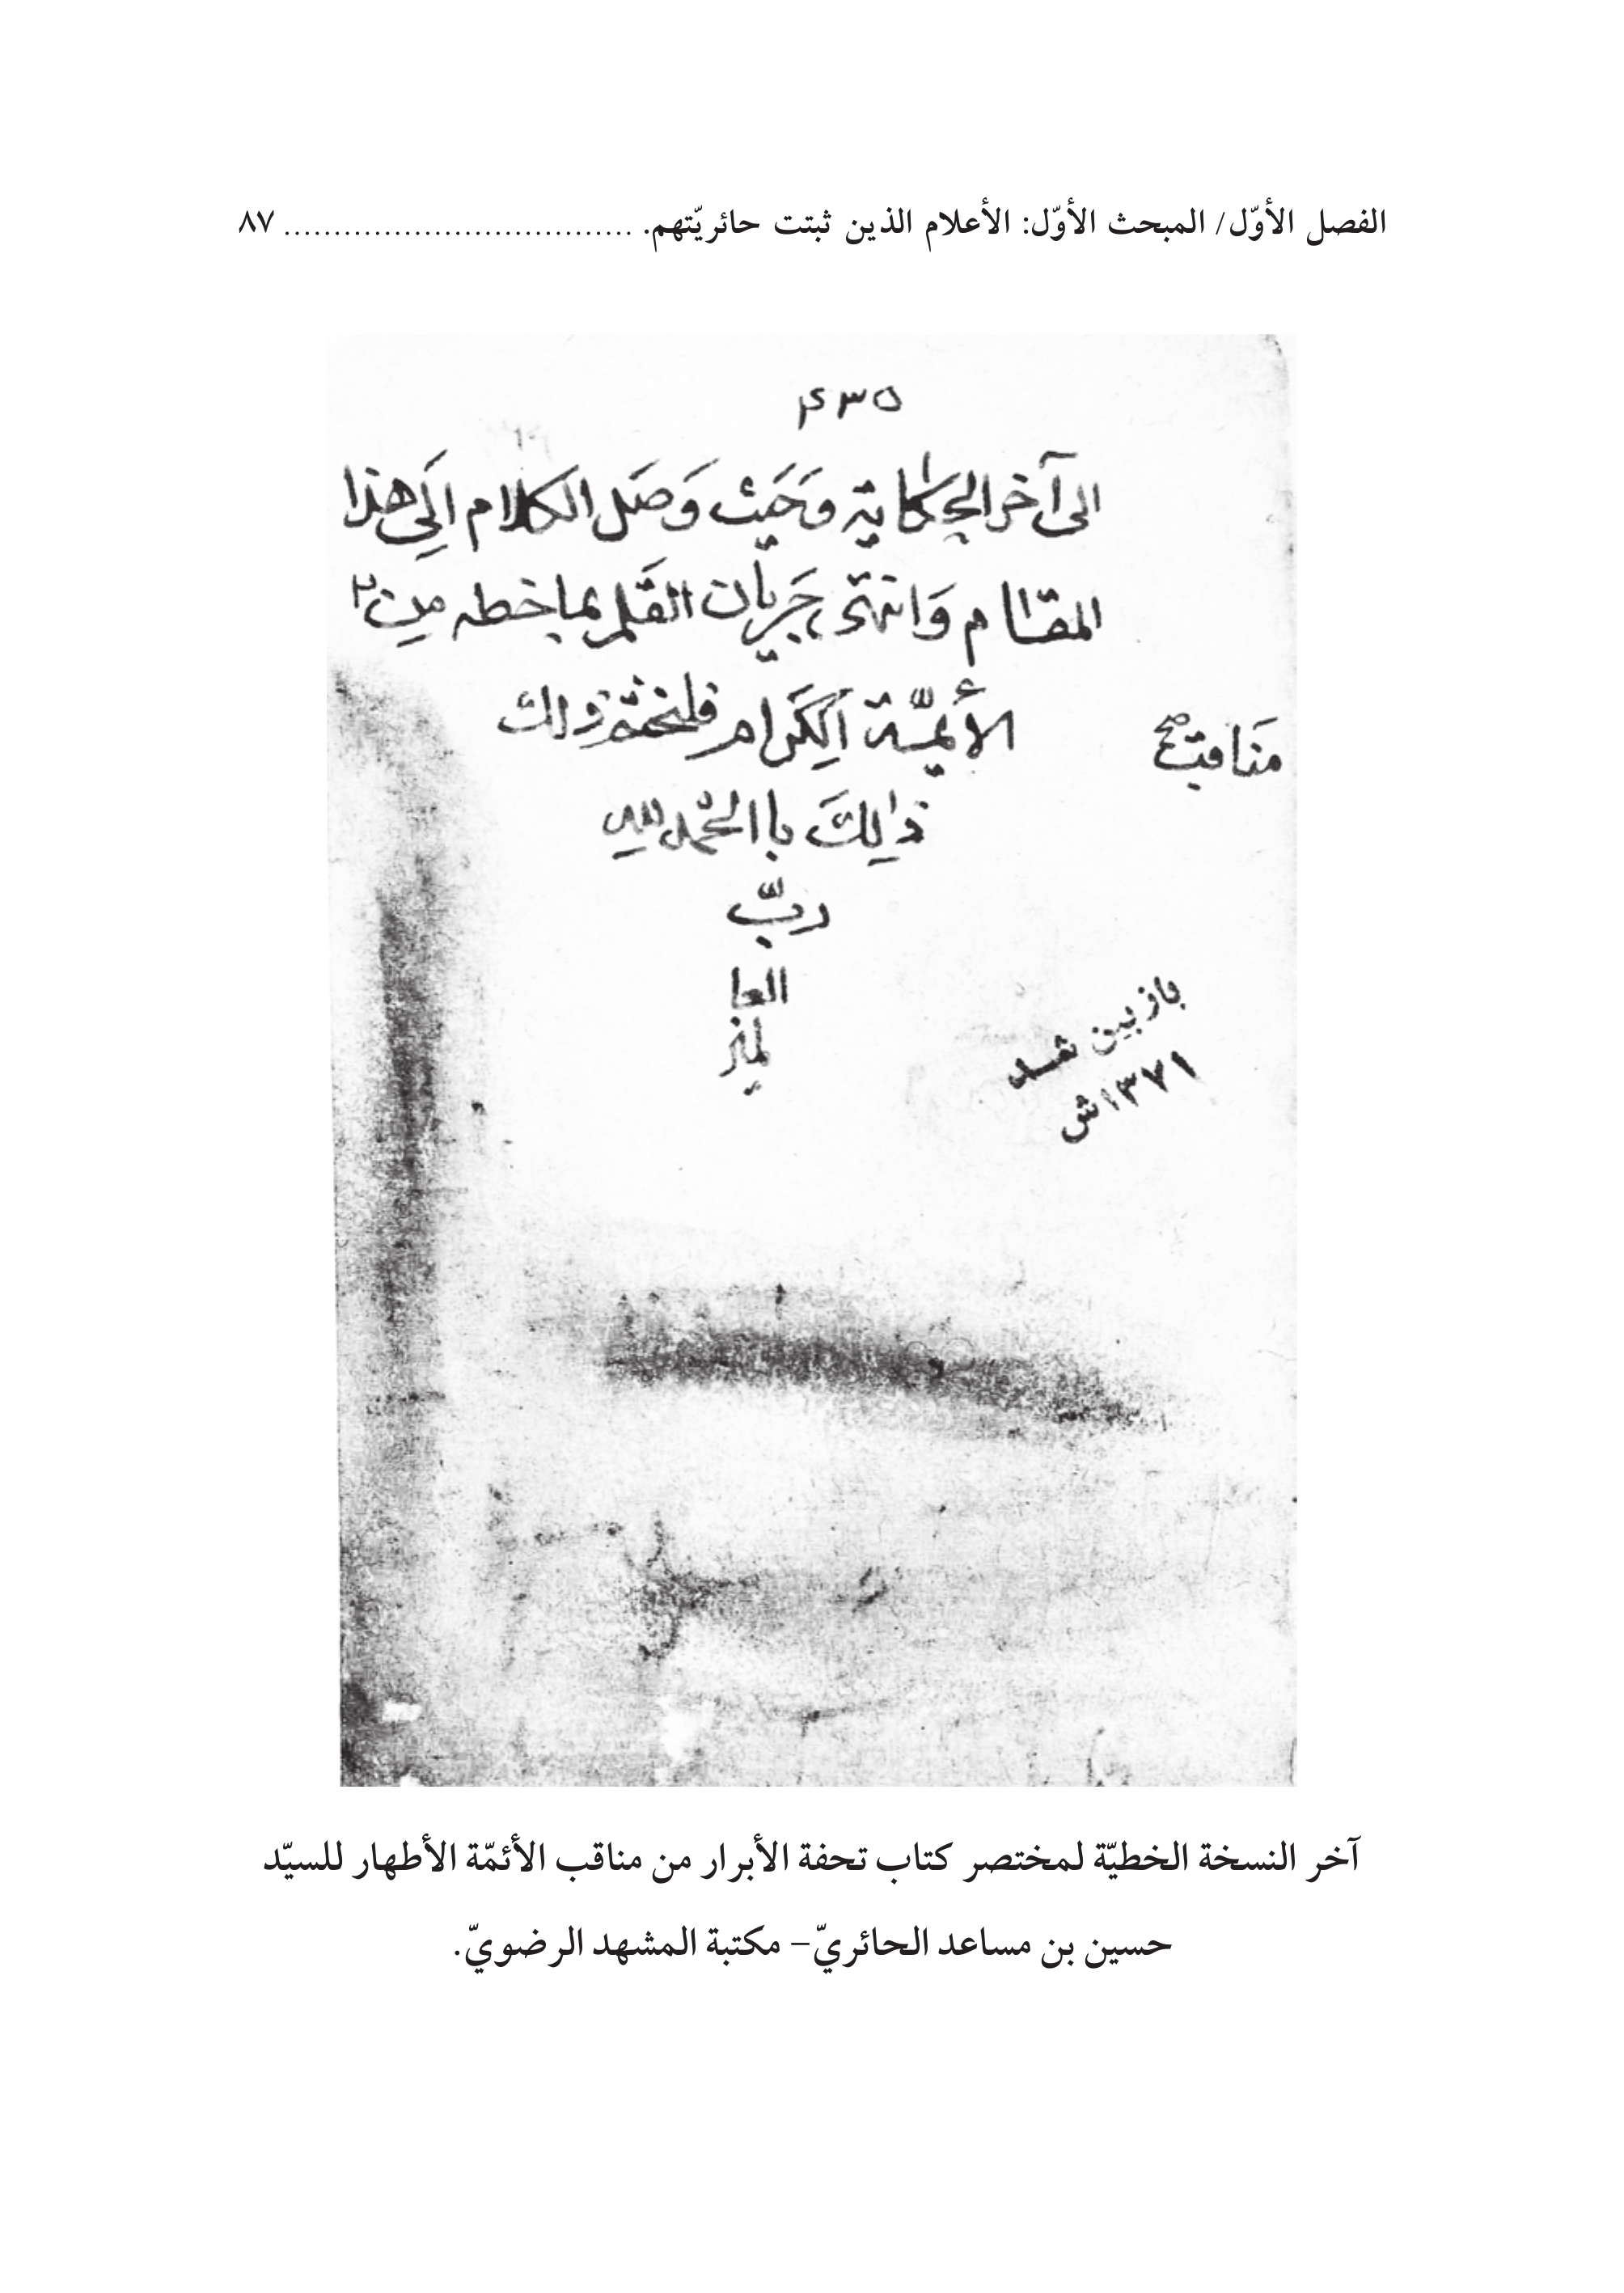 الفصل الأوّل/ المبحث الأوّل: الأعلام الذين ثبتت حائريّتهم. .................................. ٨٧
الى آخر الحِكاية وَحَيث وَصَل الكلام اِلَى هذا
المقام وَانتهى جَريان القَلم بما خطه مِن
الأئمّة الكِرام فلنختم ذلك
مَناقب صح
ذالِكَ باالحمد للهِ
ربّ
العا
لمين
بازبین شد
١٣٧١ش
آخر النسخة الخطيّة لمختصر كتاب تحفة الأبرار من مناقب الأئمّة الأطهار للسيّد
حسين بن مساعد الحائريّ– مكتبة المشهد الرضويّ.